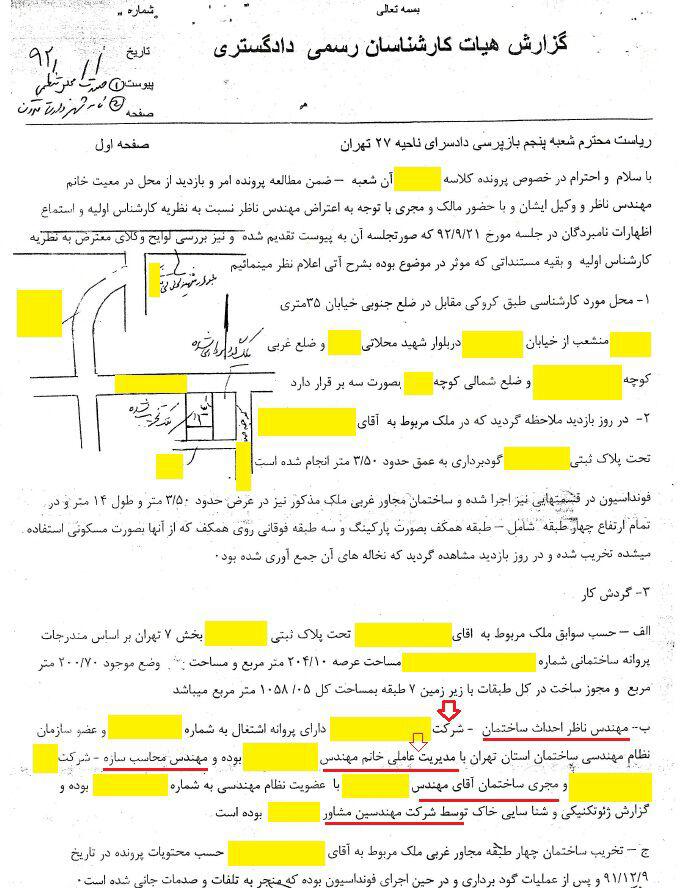 بسمه تعالی
شماره :
گزارش هیات کارشناسان رسمی دادگستری
تاریخ ۹۲/ /
پیوست
صفحه
ریاست محترم شعبه پنجم بازپرسی دادسرای ناحیه ۲۷ تهران صفحه اول
با سلام و احترام در خصوص پرونده کلاسه آن شعبه – ضمن مطالعه پرونده امر و بازدید از محل در معیت خانم
مهندس ناظر و وکیل ایشان و با حضور مالک و مجری با توجه به اعتراض مهندس ناظر نسبت به نظریه کارشناس اولیه و استماع
اظهارات نامبردگان در جلسه مورخ ۹۲/۹/۲۱ که صورتجلسه آن به پیوست تقدیم شده و نیز بررسی لوایح وکلای معترض به نظریه
کارشناس اولیه و بقیه مستنداتی که موثر در موضوع بوده بشرح آتی اعلام نظر مینمائیم
۱- محل مورد کارشناسی طبق کروکی مقابل در ضلع جنوبی خیابان ۳۵متری
منشعب از خیابان دربلوار شهید محلاتی و ضلع غربی
کوچه و ضلع شمالی کوچه بصورت سه بر قرار دارد
۲- در روز بازدید ملاحظه گردید که در ملک مربوط به آقای
تحت پلاک ثبتی گودبرداری به عمق حدود ۳/۵۰ متر انجام شده است
فونداسیون در قسمتهایی نیز اجرا شده و ساختمان مجاور غربی ملک مذکور نیز در عرض حدود ۳/۵۰ متر و طول ۱۴ متر و در
تمام ارتفاع چهار طبقه شامل – طبقه همکف بصورت پارکینگ و سه طبقه فوقانی روی همکف که از آنها بصورت مسکونی استفاده
میشده تخریب شده و در روز بازدید مشاهده گردید که نخاله های آن جمع آوری شده بود۰
۳- گردش کار
الف – حسب سوابق ملک مربوط به اقای تحت پلاک ثبتی بخش ۷ تهران بر اساس مندرجات
پروانه ساختمانی شماره مساحت عرصه ۲۰۴/۱۰ متر مربع و مساحت وضع موجود ۲۰۰/۷۰ متر
مربع و مجوز ساخت در کل طبقات با زیر زمین ۷ طبقه بمساحت کل ۱۰۵۸/۰۵ متر مربع میباشد
ب- مهندس ناظر احداث ساختمان - شرکت دارای پروانه اشتغال به شماره و عضو سازمان
نظام مهندسی ساختمان استان تهران با مدیریت عاملی خانم مهندس بوده و مهندس محاسب سازه – شرکت
و مجری ساختمان آقای مهندس با عضویت نظام مهندسی به شماره بوده و
گزارش ژئوتکنیکی و شنا سایی خاک توسط شرکت مهندسین مشاور بوده است۰
ج – تخریب ساختمان چهار طبقه مجاور غربی ملک مربوط به آقای حسب محتویات پرونده در تاریخ
۹۱/۱۲/۹ و پس از عملیات گود برداری و در حین اجرای فونداسیون بوده که منجر به تلفات و صدمات جانی شده است۰